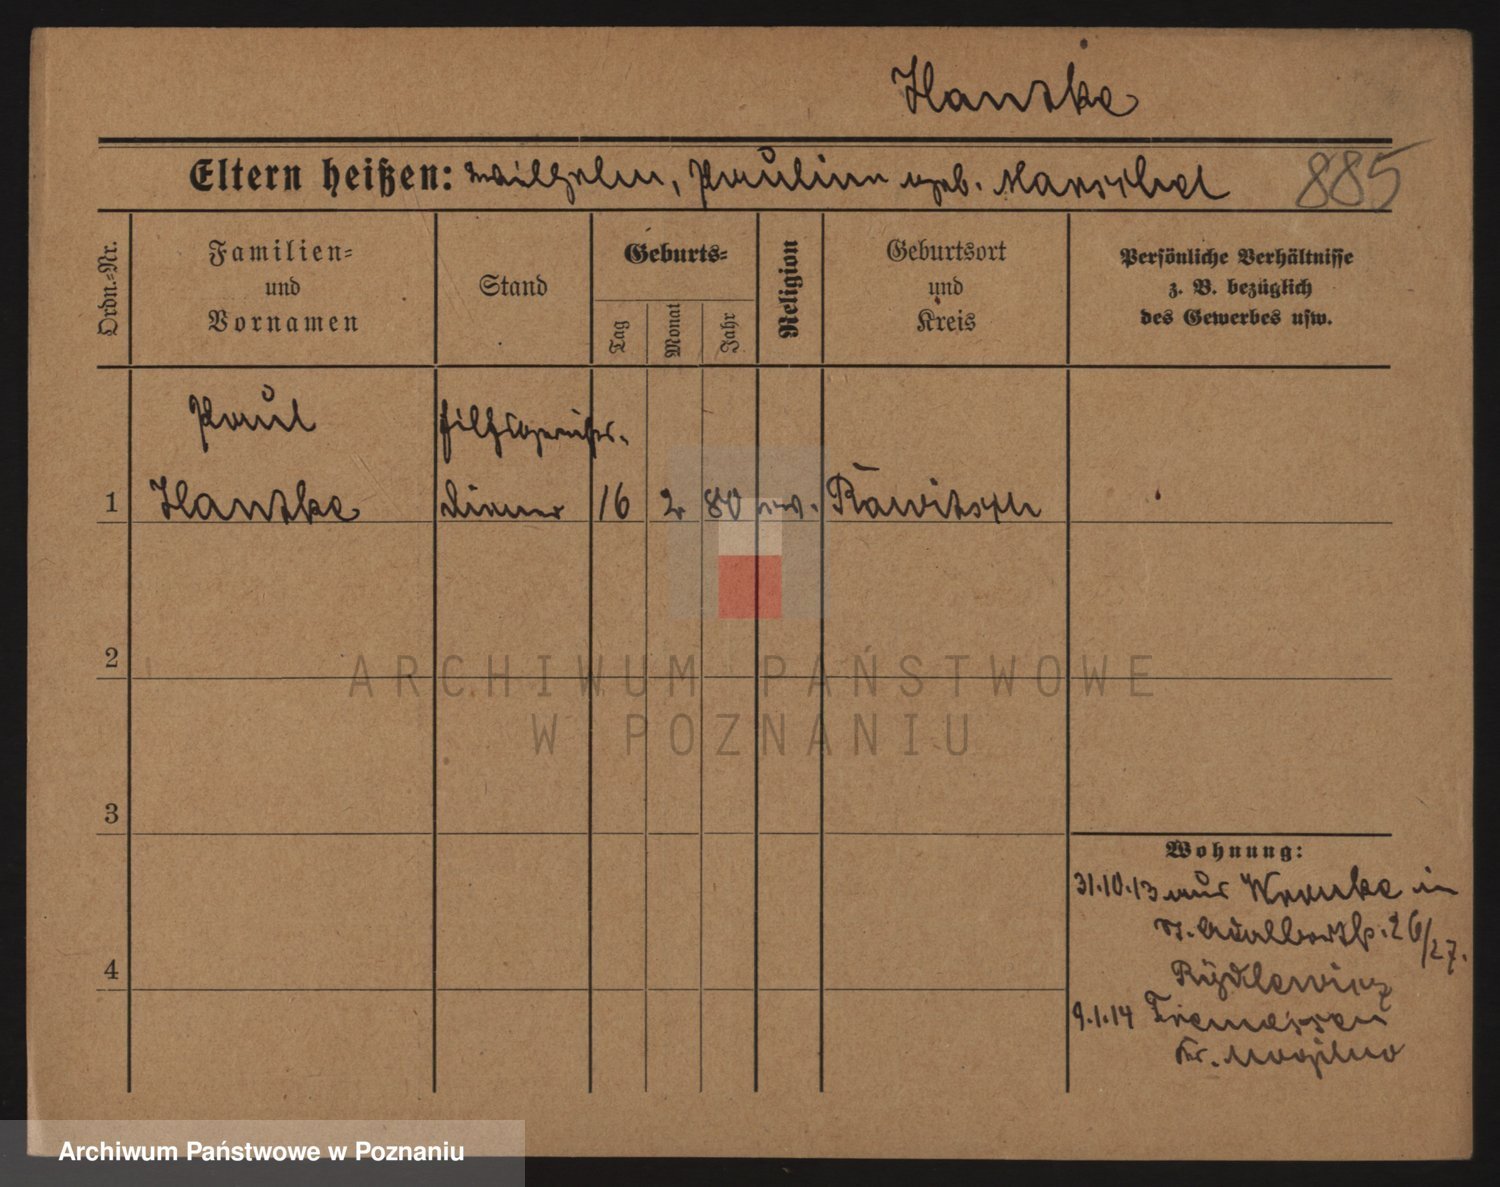 Hantke
Eltern heißen: Wilhelm, Pauline geb. Marschel 885
Ordn.-Nr.
Familien-
und
Vornamen
Stand
Geburts-
Tag
Monat
Jahr
Religion
Geburtsort
und
Kreis
Persönliche Verhältnisse
z. B. bezüglich
des Gewerbes usw.
Paul Hilfsgerichts-
1 Hantke diener 16 2 80 ev. Rawitsch
2
3
4
Wohnung:
31.10.13 aus Wronke in
St. Adalbertstr. 26/27.
Rydlewicz
9.1.14 Tremessen
Kr. Mogilno
ARCHIWUM PAŃSTWOWE
W POZNANIU
Archiwum Państwowe w Poznaniu